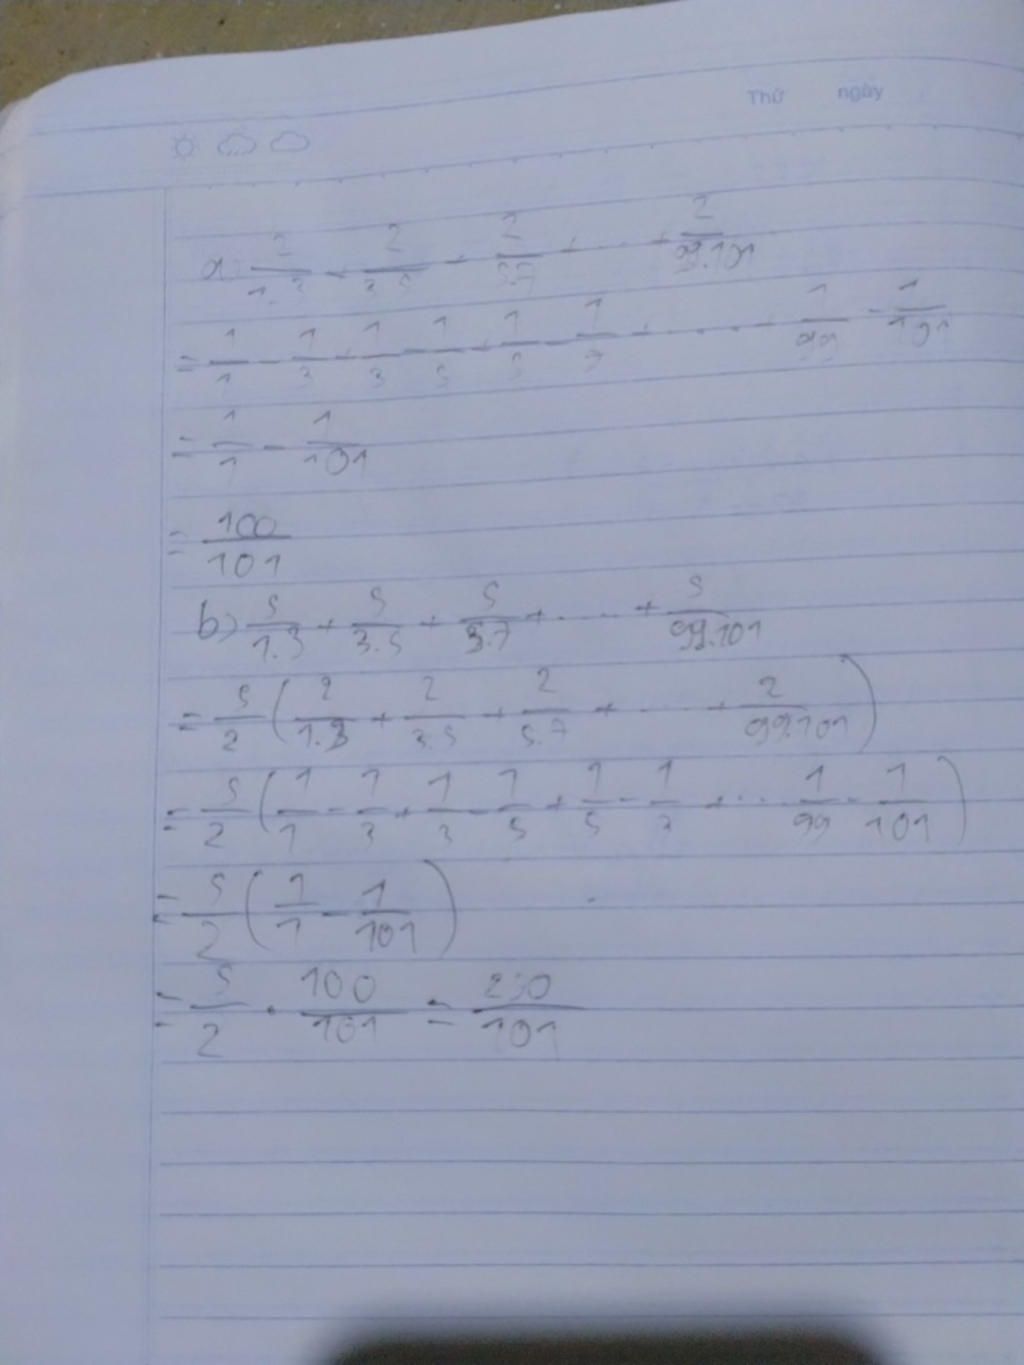 Thứ ngày
a) 2/1.3 + 2/3.5 + 2/5.7 + .... + 2/99.101
= 1/1 - 1/3 + 1/3 - 1/5 + 1/5 - 1/7 + ..... + 1/99 - 1/101
= 1/1 - 1/101
= 100/101
b) 5/1.3 + 5/3.5 + 5/5.7 + ..... + 5/99.101
= 5/2 ( 2/1.3 + 2/3.5 + 2/5.7 + ..... + 2/99.101 )
= 5/2 ( 1/1 - 1/3 + 1/3 - 1/5 + 1/5 - 1/7 + ... 1/99 - 1/101 )
= 5/2 ( 1/1 - 1/101 )
= 5/2 . 100/101 = 250/101